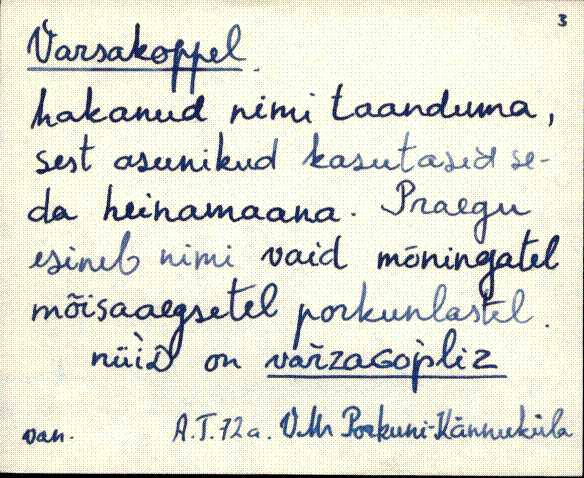 3
Varsakoppel.
hakanud nimi taanduma,
sest asunikud kasutasid se-
da heinamaana. Praegu
esineb nimi vaid mõningatel
mõisaaegsetel porkunlastel.
nüìD on vařzaGop̀liz
van. A.T. 72a. V.Mr Porkuni-Kännuküla